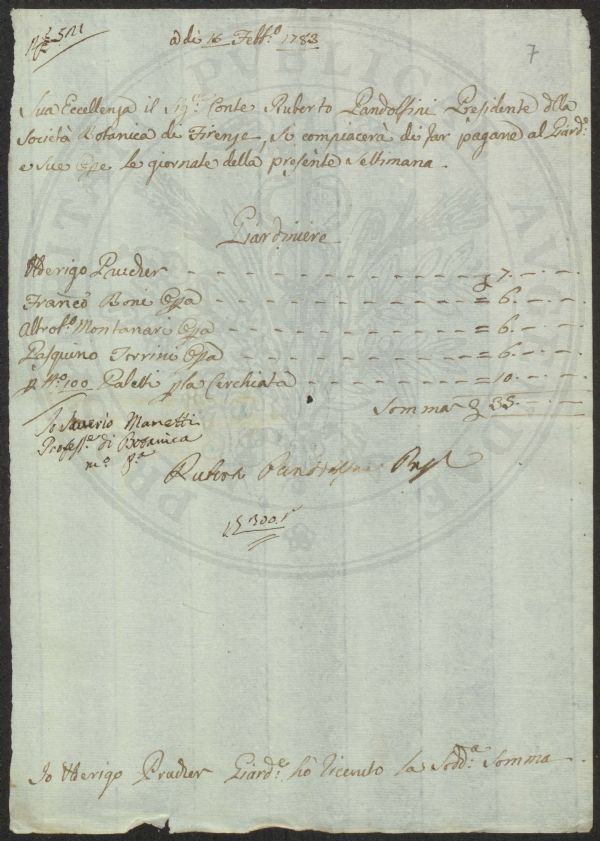 N.° 511
adi 16 Febb.° 1783
7
Sua Eccellenza il Sig.r Conte Ruberto Pandolfini Presidente della
Società Botanica di Firenze, si compiacerà di far pagare al Giard.e
e sue Opre le giornate della presente Settimana.
Giardiniere
Uderigo Prucher - - - - - - - - - £ 7. - . -
Franc.o Boni Opra - - - - - - - - = 6. - . -
Montanari Opra - - - - - - - - = 6. - . -
Pasquino Torrini Opra - - - - - - - - = 6. - . -
p N.° 100 Paletti p la Cerchiata - - - - - = 10. - . -
Somma £ 35. - . -
Io Saverio Manetti
Profess.e di Botanica
m.o p.a
Rubert Pandolfini Pres
300.
Io Uderigo Prucher Giard.e hò Riceuto la Sudd.a Somma
PUBLICAE